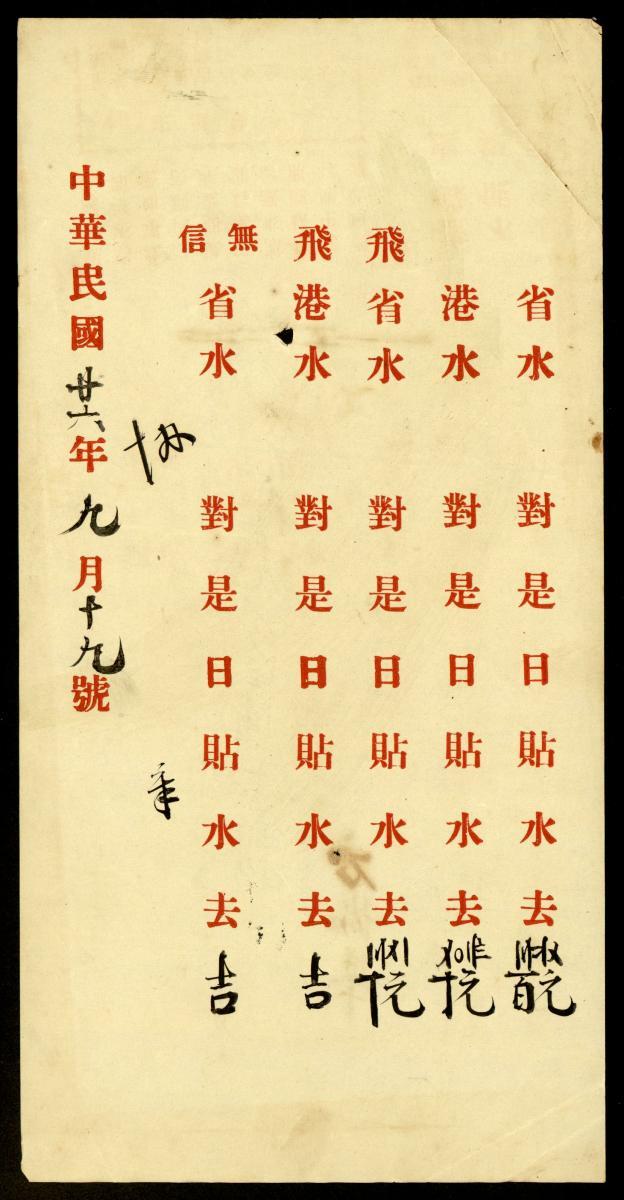 省水 對是日貼水去 百元
港水 對是日貼水去 十元
飛省水 對是日貼水去 十元
飛港水 對是日貼水去 吉
無信省水 對是日貼水去 吉
中華民國廿六年九月十九號